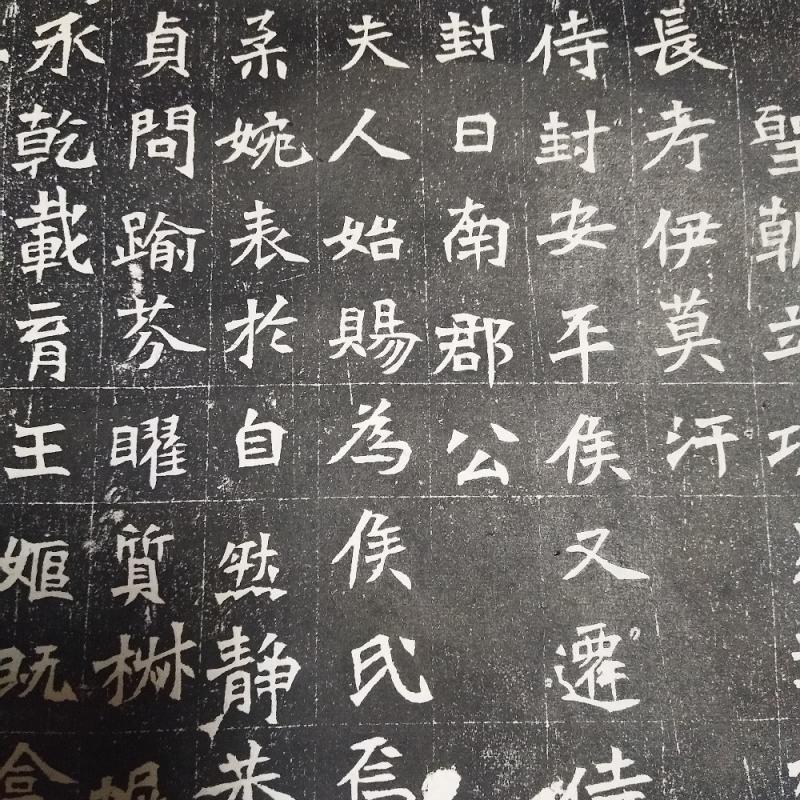 聖朝立
長考伊莫汗
侍封安平侯又遷侍
封日南郡公
夫人始賜為侯氏焉
柔婉表於自然靜恭
貞問踰芬曜質椒幄
承乾載育王姬既